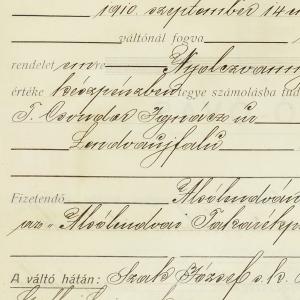 1910. szeptember 14
váltónál fogva
rendelet emre Nyolczvann
értéke készpénzben tegye számolásba tud
T. Csondor Ignácz úr
Lendvaujfalú
Fizetendő Alsólendván
az "Alsólendvai Takarékp
A váltó hátán: Szak József s. k.